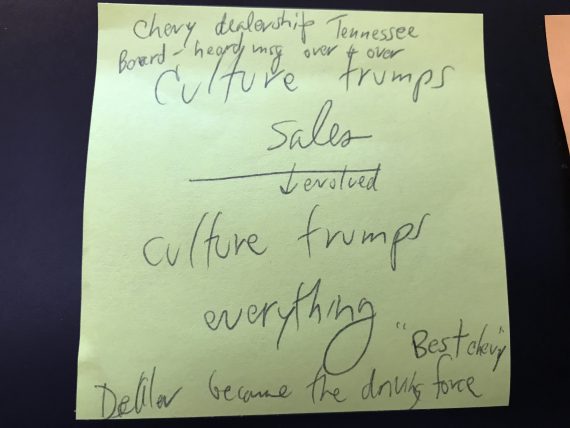 Chevy dealership Tennessee
Board - heard msg over + over
Culture trumps
Sales
↓ evolved
culture trumps
everything
"Best chevy"
Dealer became the driving force